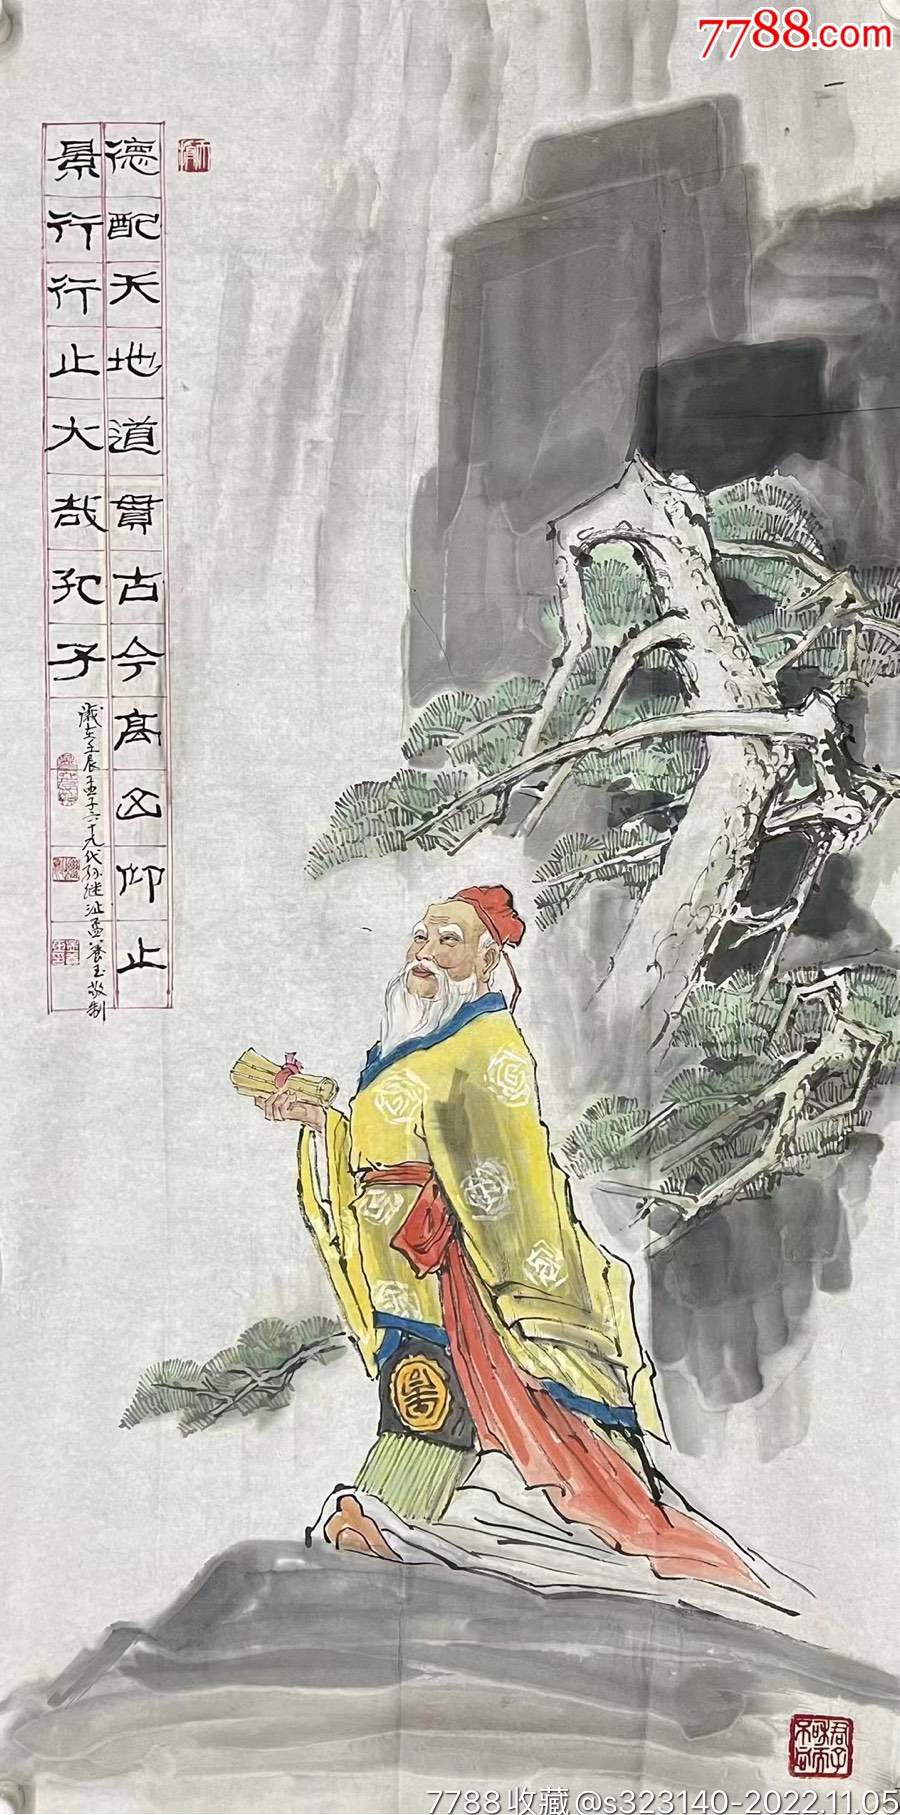 7788.com
德配天地道贯古今高山仰止
景行行止大哉孔子
歲在壬辰孟子六十九代孙继沚孟養玉敬制
君子和而不同
7788收藏@s323140-2022.11.05